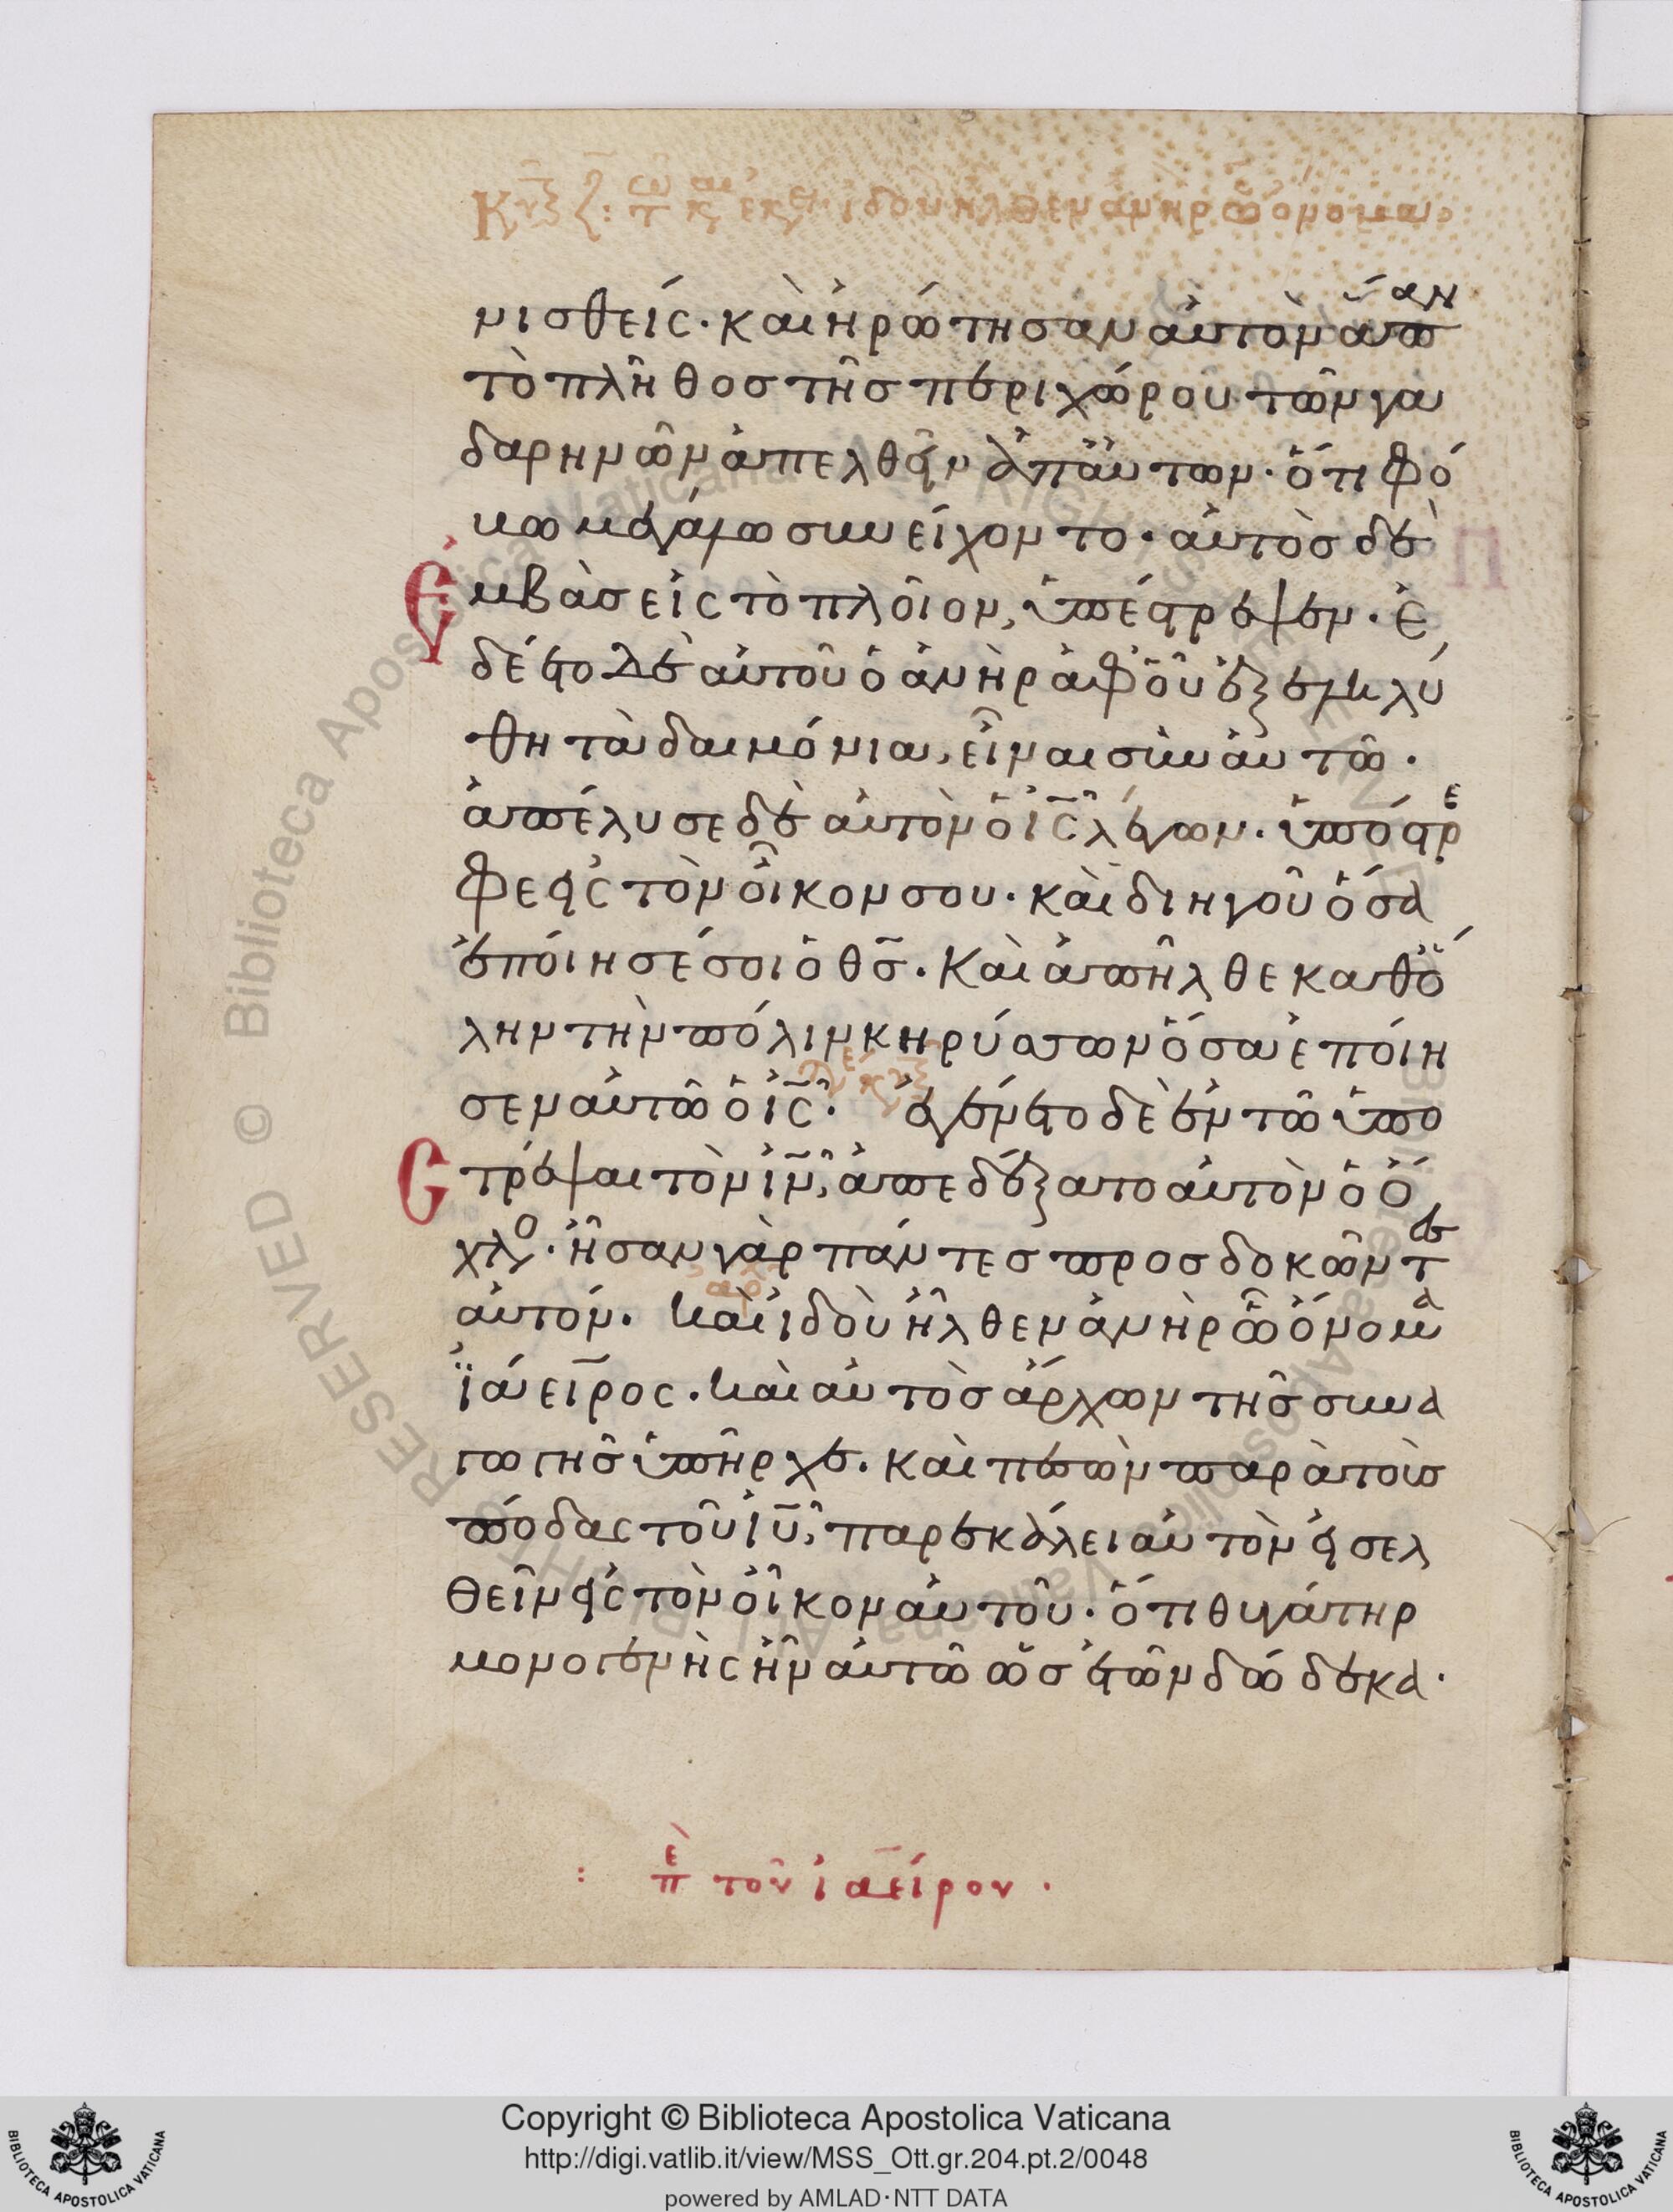 Κυ ζ : τω καιρω εκεινω ιδου ηλθεν ανηρ ω ονομα
νισθείς · καὶ ἠρώτησαν αὐτὸν ἅπαν
τὸ πλῆθοσ τῆσ περιχώρου τῶν γα
δαρηνῶν ἀπελθεῖν ἀπ ἀυτων · ὅτι φό
βω μεγάλω συνείχοντο · αὐτὸσ δὲ
ἐμβὰσ εἰς τὸ πλοῖον, ὑπέστρεψεν · ἐ
δέετο δὲ αὐτοῦ ὁ ἀνὴρ ἀφ οὗ ἐξεληλύ
θη τὰ δαιμόνια, εἶναι σὺν ἀυτῶ ·
ἀπέλυσε δὲ αὐτὸν ὁ ἰς̃ λέγων · ὑπόστρε
φε εἰς τὸν οἶκον σου · καὶ διηγοῦ ὅσα
ἐποίησέ σοι ὁ θσ̃ · Καὶ ἀπῆλθε καθ ὅ
λην τὴν πόλιν κηρύσσων ὅσα ἐποίη
σεν αὐτῶ ὁ ἰς̃ · ἐγένετο δὲ ἐν τῶ ὑπο
στρέψαι τὸν ἰν̃, ἀπεδέξατο αὐτὸν ὁ ὄ
χλο · ἦσαν γὰρ πάντεσ προσδοκῶντεσ
αὐτόν. Καὶ ἰδοὺ ἦλθεν ἀνὴρ ὧ ὄνομα
ϊάειρος · καὶ αὐτὸσ ἄρχων τῆσ συνα
γωγῆσ ὑπῆρχε. καὶ πεσὼν παρὰ τοὺσ
πόδας τοῦ ἰυ̃, παρεκάλει αὐτὸν εἰσελ
θεῖν εἰς τὸν οἶκον αὐτοῦ · ὅτι θυγάτηρ
μονογενὴς ἦν αὐτῶ ὡσ ἐτῶν δώδεκα ·
: πὲ τὸν ἰαείρον ·
Copyright © Biblioteca Apostolica Vaticana
http://digi.vatlib.it/view/MSS_Ott.gr.204.pt.2/0048
powered by AMLAD·NTT DATA
BIBLIOTECA APOSTOLICA VATICANA
BIBLIOTECA APOSTOLICA VATICANA